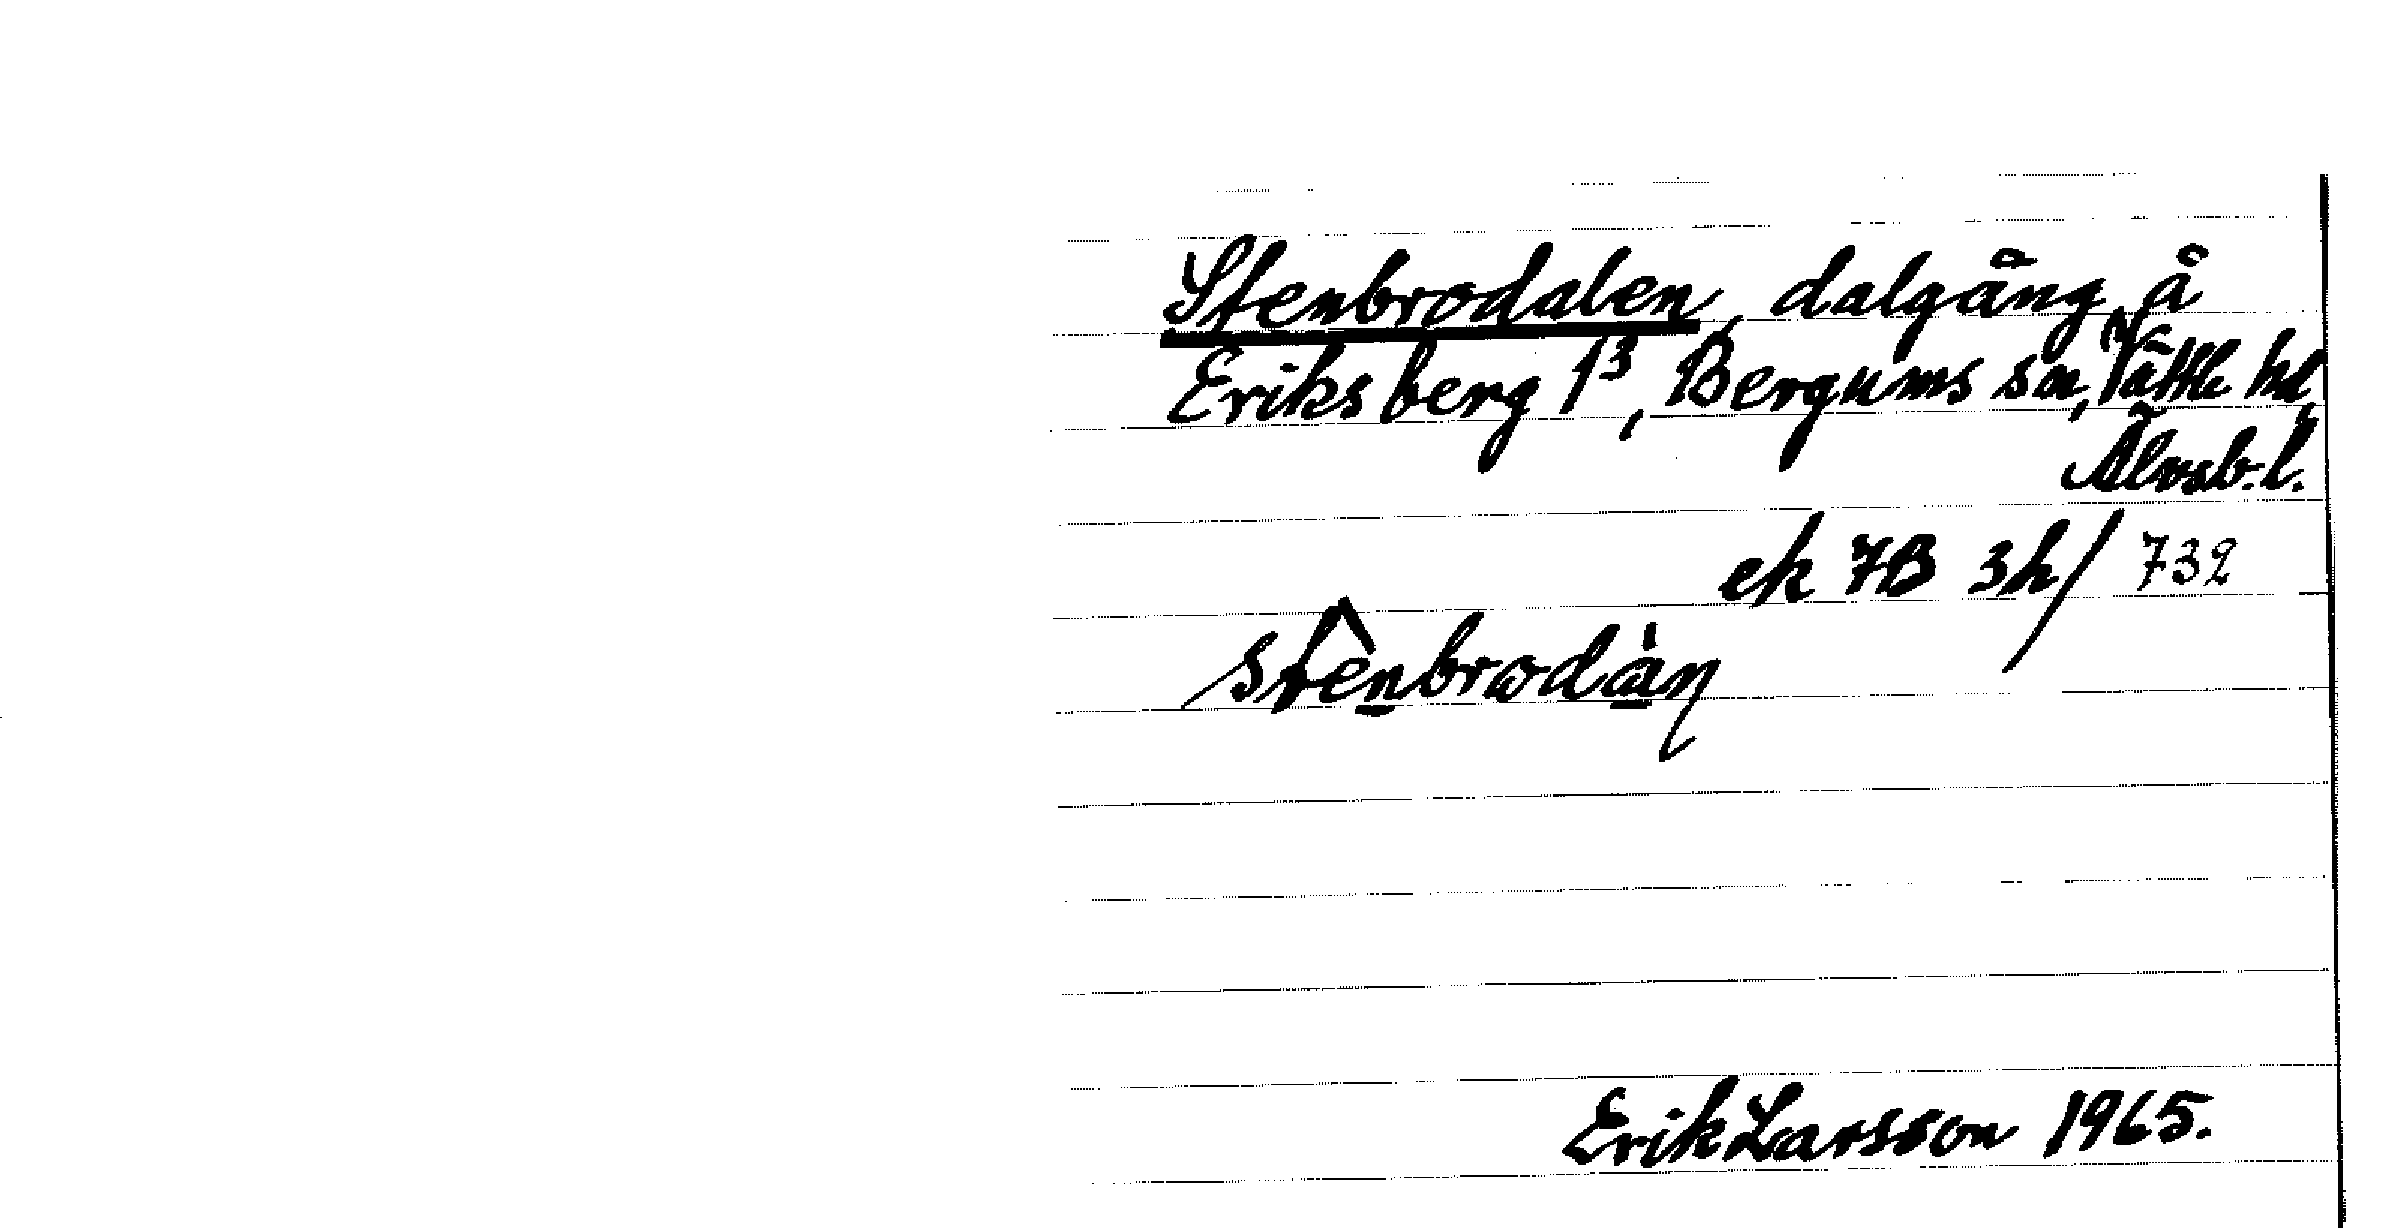 Stenbrodalen, dalgång å
Eriksberg 1³, Bergums sn, Vättle hd,
Älvsb. l.
ek 7B 3h/ 732
Erik Larsson 1965.